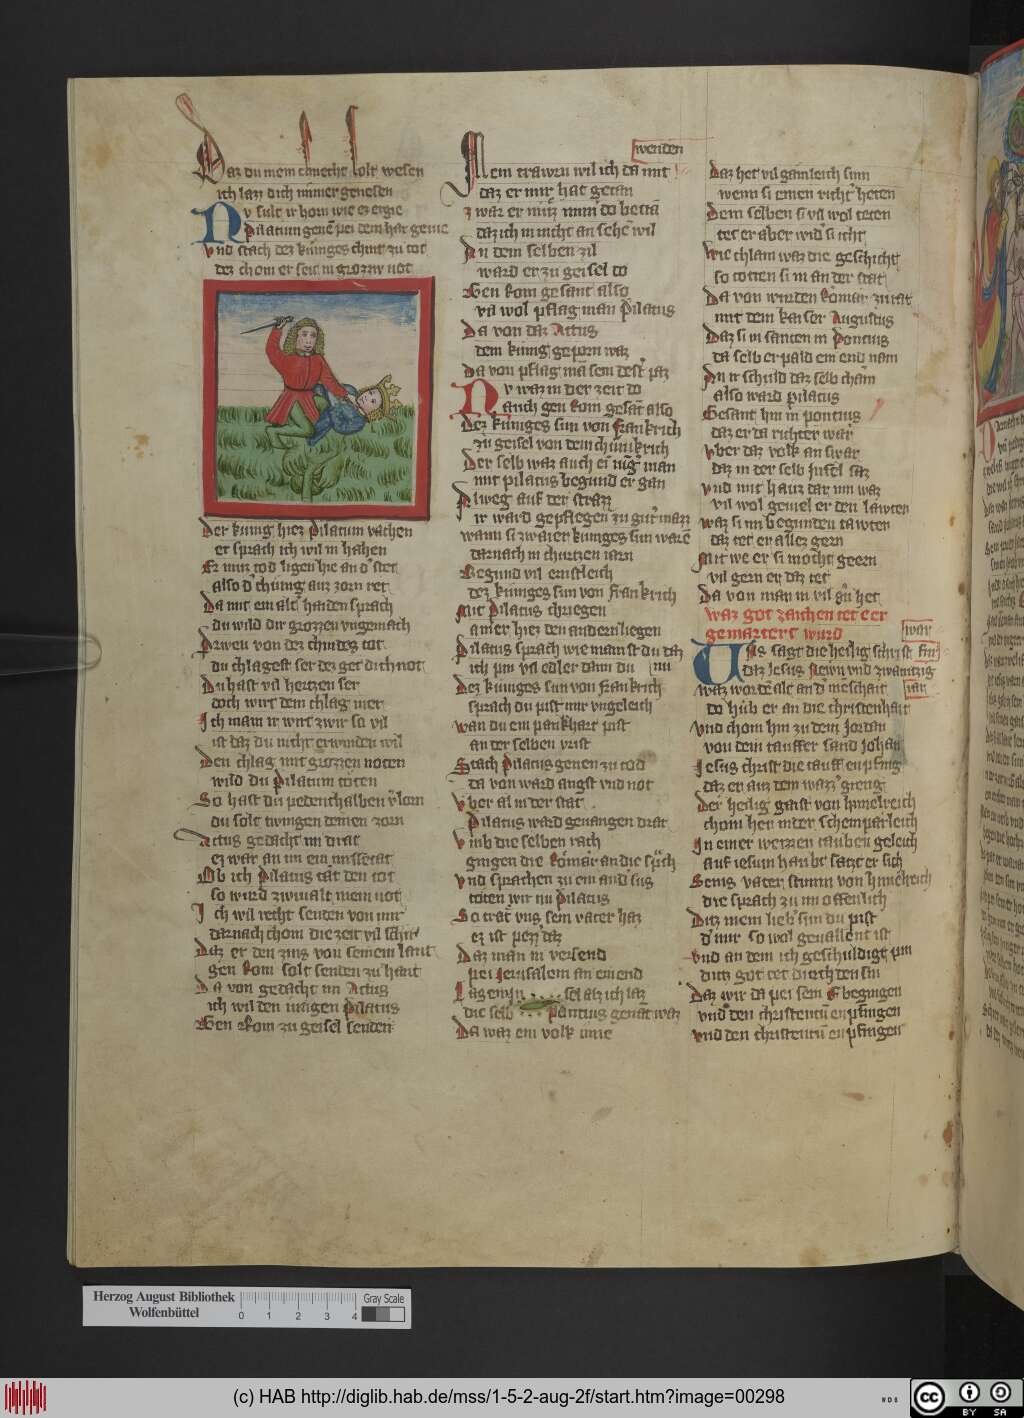 Daz du mein chnecht solt wesen
ich lazz dich nimmer genesen
Nv sult ir horn wie ez ergie
Pilatum genē pei dem har gevie
vnd stach dez küniges chint zu tot
dez chom er seit in grozzny not
Der künig hiez Pilatum vachen
er sprach ich wil in hahen
Er muz tod ligen hie an d' stet
also d' chünig auz zorn ret
Da mit ein alt' haiden sprach
du wild dir grozzen vngemach
Prwen von dez chindes tot
du chlagest ser dez get dich not
Du hast vil hertzen ser
doch wirt dein chlag mer
Ich main ir wirt zwir so vil
ist daz du nicht erwinden wil
Den chlag mit grozzen noten
wild du Pilatum töten
So hast du pedenthalben v'lorn
du solt twingen deinen zorn
Actus gedacht im drat
ez war an im ein missetat
Ob ich Pilatus tät den tot
so wurd zwiualt mein not
Ich wil recht senden von mir
darnach chom die zeit vil schir
Daz er den zins von seinem lant
gen Rom solt senden zu hant
Da von gedacht im Actus
ich wil den iungen Pilatus
Gen Rom zu geisel senden
wenden
Mein trawrn wil ich da mit
daz er mir hat getan
zwar er muz nim do bestā
daz ich in nicht an sehē wil
An dem selben zil
ward er zu geisel do
Gen Rom gesant also
vil wol pflag man Pilatus
Da von daz Actus
dem künig geporn waz
da von pflag mā sein dest' paz
Nv waz in der zeit do
auch gen Rom gesāt also
Dez küniges sun von Frankrich
zu geisel von dem chünikrich
Der selb waz auch ei iūg man
mit pilatus begund er gan
Alweg auf der strazz
ir ward gepflegen zu gut' mazz
wann si zwai er küniges sun warē
darnach in churtzen iarn
Begund vil ernstleich
dez küniges sun von Frankrich
Mit Pilatus chriegen
ainer hiez den andern liegen
Pilatus sprach wie mainst du daz
ich pin vil edler dann du
nu
Dez küniges sun von Frankrich
sprach du pist mir vngeleich
wan du ein pankhart pist
an der selben vrist
Stach Pilatus genen zu tod
da von ward angst vnd not
Vber al in der stat
Pilatus ward geuangen drat
Vmb die selben rach
gingen die Römär an die spch
Vnd sprachen zu ein and' sus
töten wir nu Pilatus
So trat vns sein vater haz
ez ist pezz' daz
Daz man in versend
pei Jerusalem an ein end
Lag ein insel alz ich laz
die selb Pantius genāt waz
Da waz ein volk inne
Daz het vil gämleich sinn
wenn si einen richt' heten
Dem selben si vil wol teten
tet er aber wid' si icht
wie chlain waz die geschicht
so totten si in an der stat
Da von wurden Römär zu rat
mit dem kaiser Augustus
Daz si in santen in Pontius
da selb er pald ein end nam
An ir schuld daz selb cham
also ward pilatus
Gesant hin in pontius
daz er da richter wär
vber daz volk an swär
daz in der selb insel saz
vnd mit hauz dar inn waz
vil wol geuiel er den lawten
waz si im begunden tawten
daz tet er allez gern
Mit we er si mocht geern
vil gern er daz tet
Da von man in vil gu' het
waz got zaichen tet e er
gemartert wurd
war
Vns sagt die heilig schrift ain
daz Jesus Newn vnd zwaintzig
waz wordē alt an d' meschait
iar
do hub er an die christenhait
vnd chom hin zu dem Jordan
von dem tauffer sand Johan
Jesus christ die tauff enpfing
daz er auz dem wazz' gieng
Der heilig gaist von himelreich
chom her in der schein parleich
In einer weizzen tauben geleich
auf iesum haubt satzt er sich
Seins vater stimm von himelreich
die sprach zu im offenlich
Ditz mein lieb' sun du pist
d' mir so wol geuallent ist
vnd an dem ich geschuldigt pin
dich got tet durch den sin
Daz wir da pei sein E begingen
vnd den christentū enpfingen
vnd den christentū enpfingen
Herzog August Bibliothek
Wolfenbüttel
0 1 2 3 4
Gray Scale
(c) HAB http://diglib.hab.de/mss/1-5-2-aug-2f/start.htm?image=00298
WDB
cc BY SA